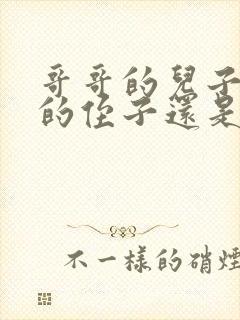 哥哥的兒子
的侄子還是
不一樣的硝煙